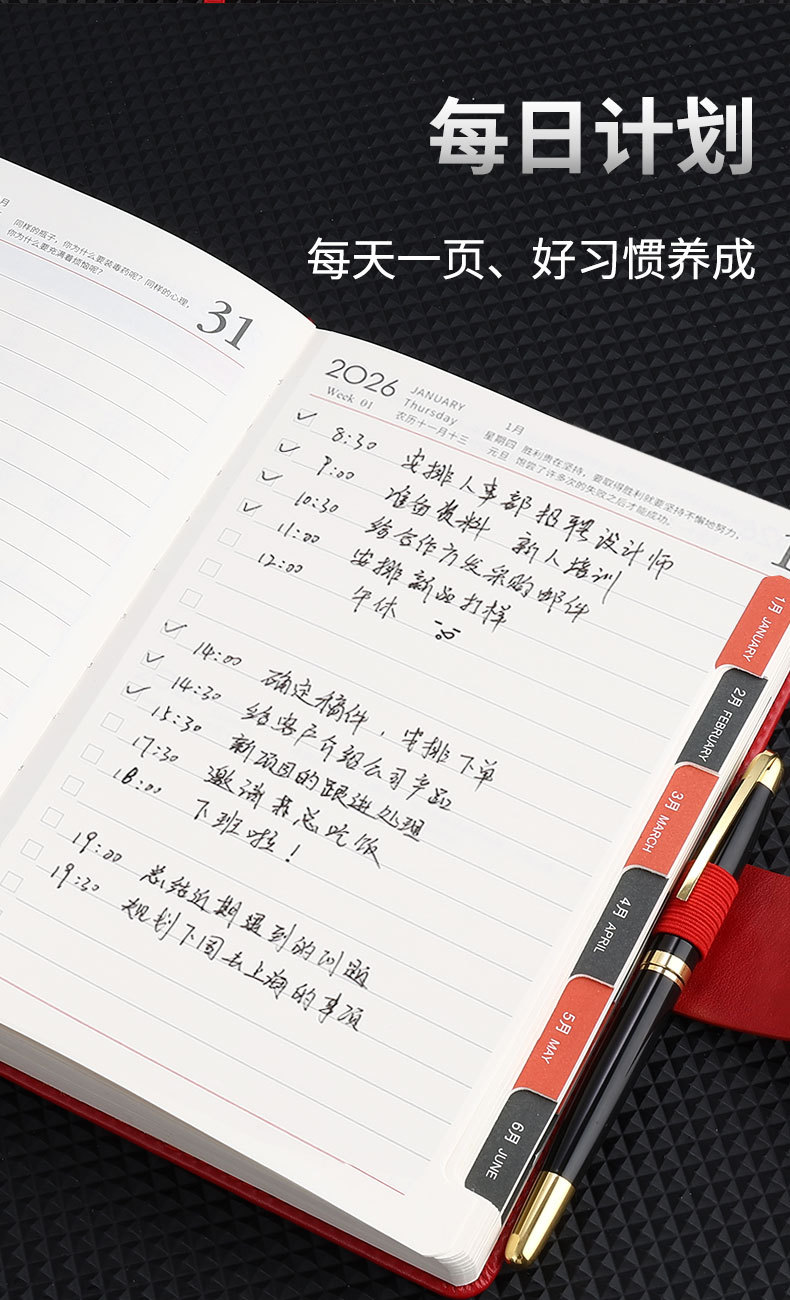 每日计划
每天一页、好习惯养成
月
同样的瓶子,你为什么要装毒药呢?同样的心理,
你为什么要充满着烦恼呢?
31
2026 JANUARY 1月
Week 01 Thursday 星期四 胜利贵在坚持,要取得胜利就要坚持不懈地努力,
农历十一月十三 元旦 饱尝了许多次的失败之后才能成功。
1
8:30 安排人事部招聘设计师
9:00 准备资料 新人培训
10:30 给合作方发采购邮件
11:00 安排新品打样
12:00 午休
14:00 确定稿件,安排下单
14:30 给客户介绍公司产品
15:30 新项目的跟进处理
17:30 邀请蒋总吃饭
18:00 下班啦!
19:00 总结近期遇到的问题
19:30 规划下周去上海的事项
1月 JANUARY
2月 FEBRUARY
3月 MARCH
4月 APRIL
5月 MAY
6月 JUNE